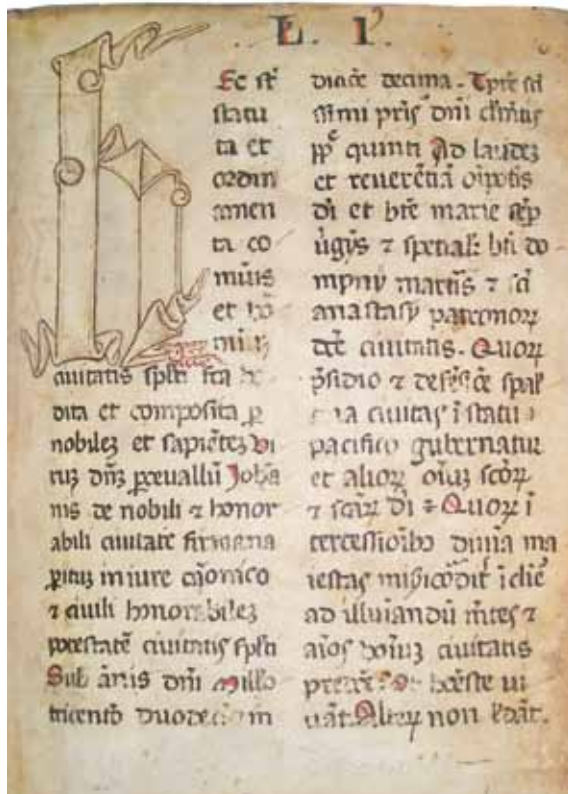 L. I
Ec st
statu
ta et
ordin
amen
ta co
munis
et ho
minuz
ciuitatis spleti
dita et composita p
nobilez et sapientez vi
ruz dnz pceuallu Joha
nis de nobili ⁊ honor
abili ciuitate firmana
pituz in iure canonico
⁊ ciuili honorabilez
potestate ciuitatis spleti
Sub anis dni millo
tricento duodecim in
dictione decima. Tpre sci
ssimi pris dni clemtis
pp quinti Ad laudez
et reuerentia oipotis
di et bte marie sep
uginis ⁊ spetial bti do
mpny martiris ⁊ sci
anastasy patronoꝝ
dce ciuitatis. Quoꝝ
psidio ⁊ defensioe spal
ciuitas i statu
pacifico gubernatur
et alioꝝ oiuz scoꝝ
⁊ scaꝝ di Quoꝝ i
tercessioibo diuina ma
iestas miscodit i clie
ad illuiandu mtes ⁊
aios hoiuz ciuitatis
honeste ui
uat. Alteꝝ non ledat.